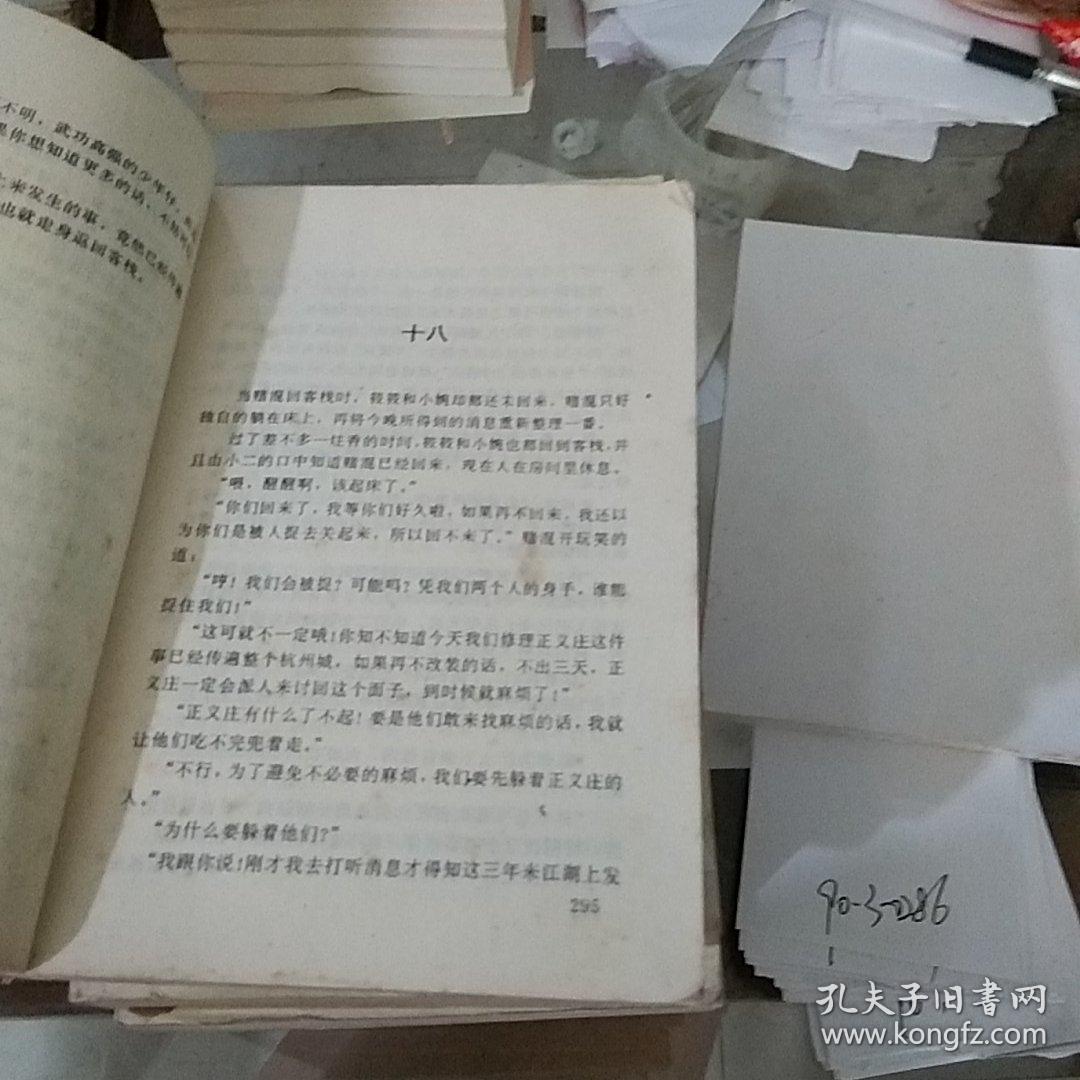 不明，武功高强的少年
你想知道更多的话，不
来发生的事，竟他已经
也就走身返回客栈。
十八
当赌混回客栈时，筱筱和小婉却都还未回来，赌混只好
独自的躺在床上，再将今晚所得到的消息重新整理一番。
过了差不多一炷香的时间，筱筱和小婉也都回到客栈，并
且由小二的口中知道赌混已经回来，现在人在房间里休息。
“喂，醒醒啊，该起床了。”
“你们回来了，我等你们好久啦，如果再不回来，我还以
为你们是被人捉去关起来，所以回不来了。”赌混开玩笑的
道：
“哼！我们会被捉？可能吗？凭我们两个人的身手，谁能
捉住我们！”
“这可就不一定哦！你知不知道今天我们修理正义庄这件
事已经传遍整个杭州城，如果再不改装的话，不出三天，正
义庄一定会派人来讨回这个面子，到时候就麻烦了！”
“正义庄有什么了不起！要是他们敢来找麻烦的话，我就
让他们吃不完兜着走。”
“不行，为了避免不必要的麻烦，我们要先躲着正义庄的
人。”
“为什么要躲着他们？”
“我跟你说！刚才我去打听消息才得知这三年来江湖上发
295
90-3-286
孔夫子旧书网
www.kongfz.com